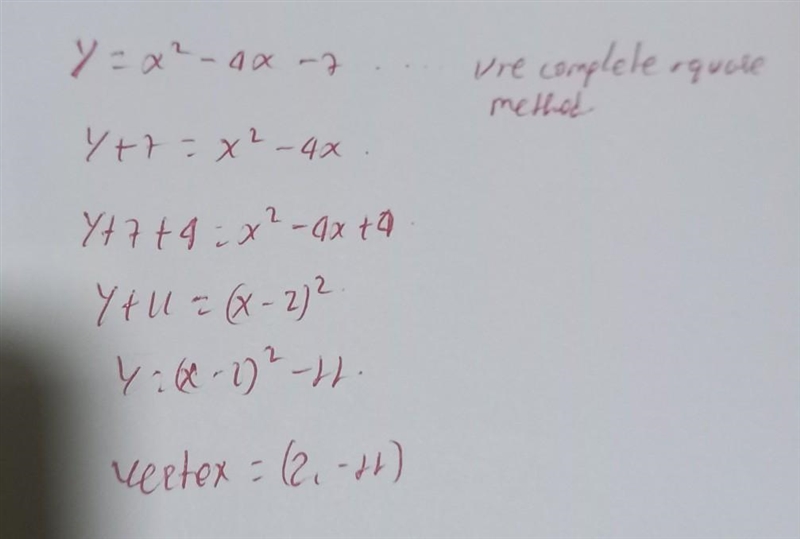 y = x² - 4x - 7 .... use complete square
method
y + 7 = x² - 4x.
y + 7 + 4 = x² - 4x + 4
y + 11 = (x - 2)²
y = (x - 2)² - 11.
vertex = (2, -11)